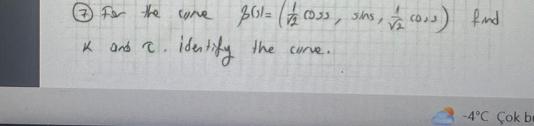 ⑦ For the curve β(s)= (1/√2 coss, sins, 1/√2 coss) find
κ and τ. identify the curve.
-4°C Çok b